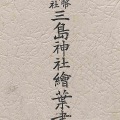 幣社
三島神社繪葉書